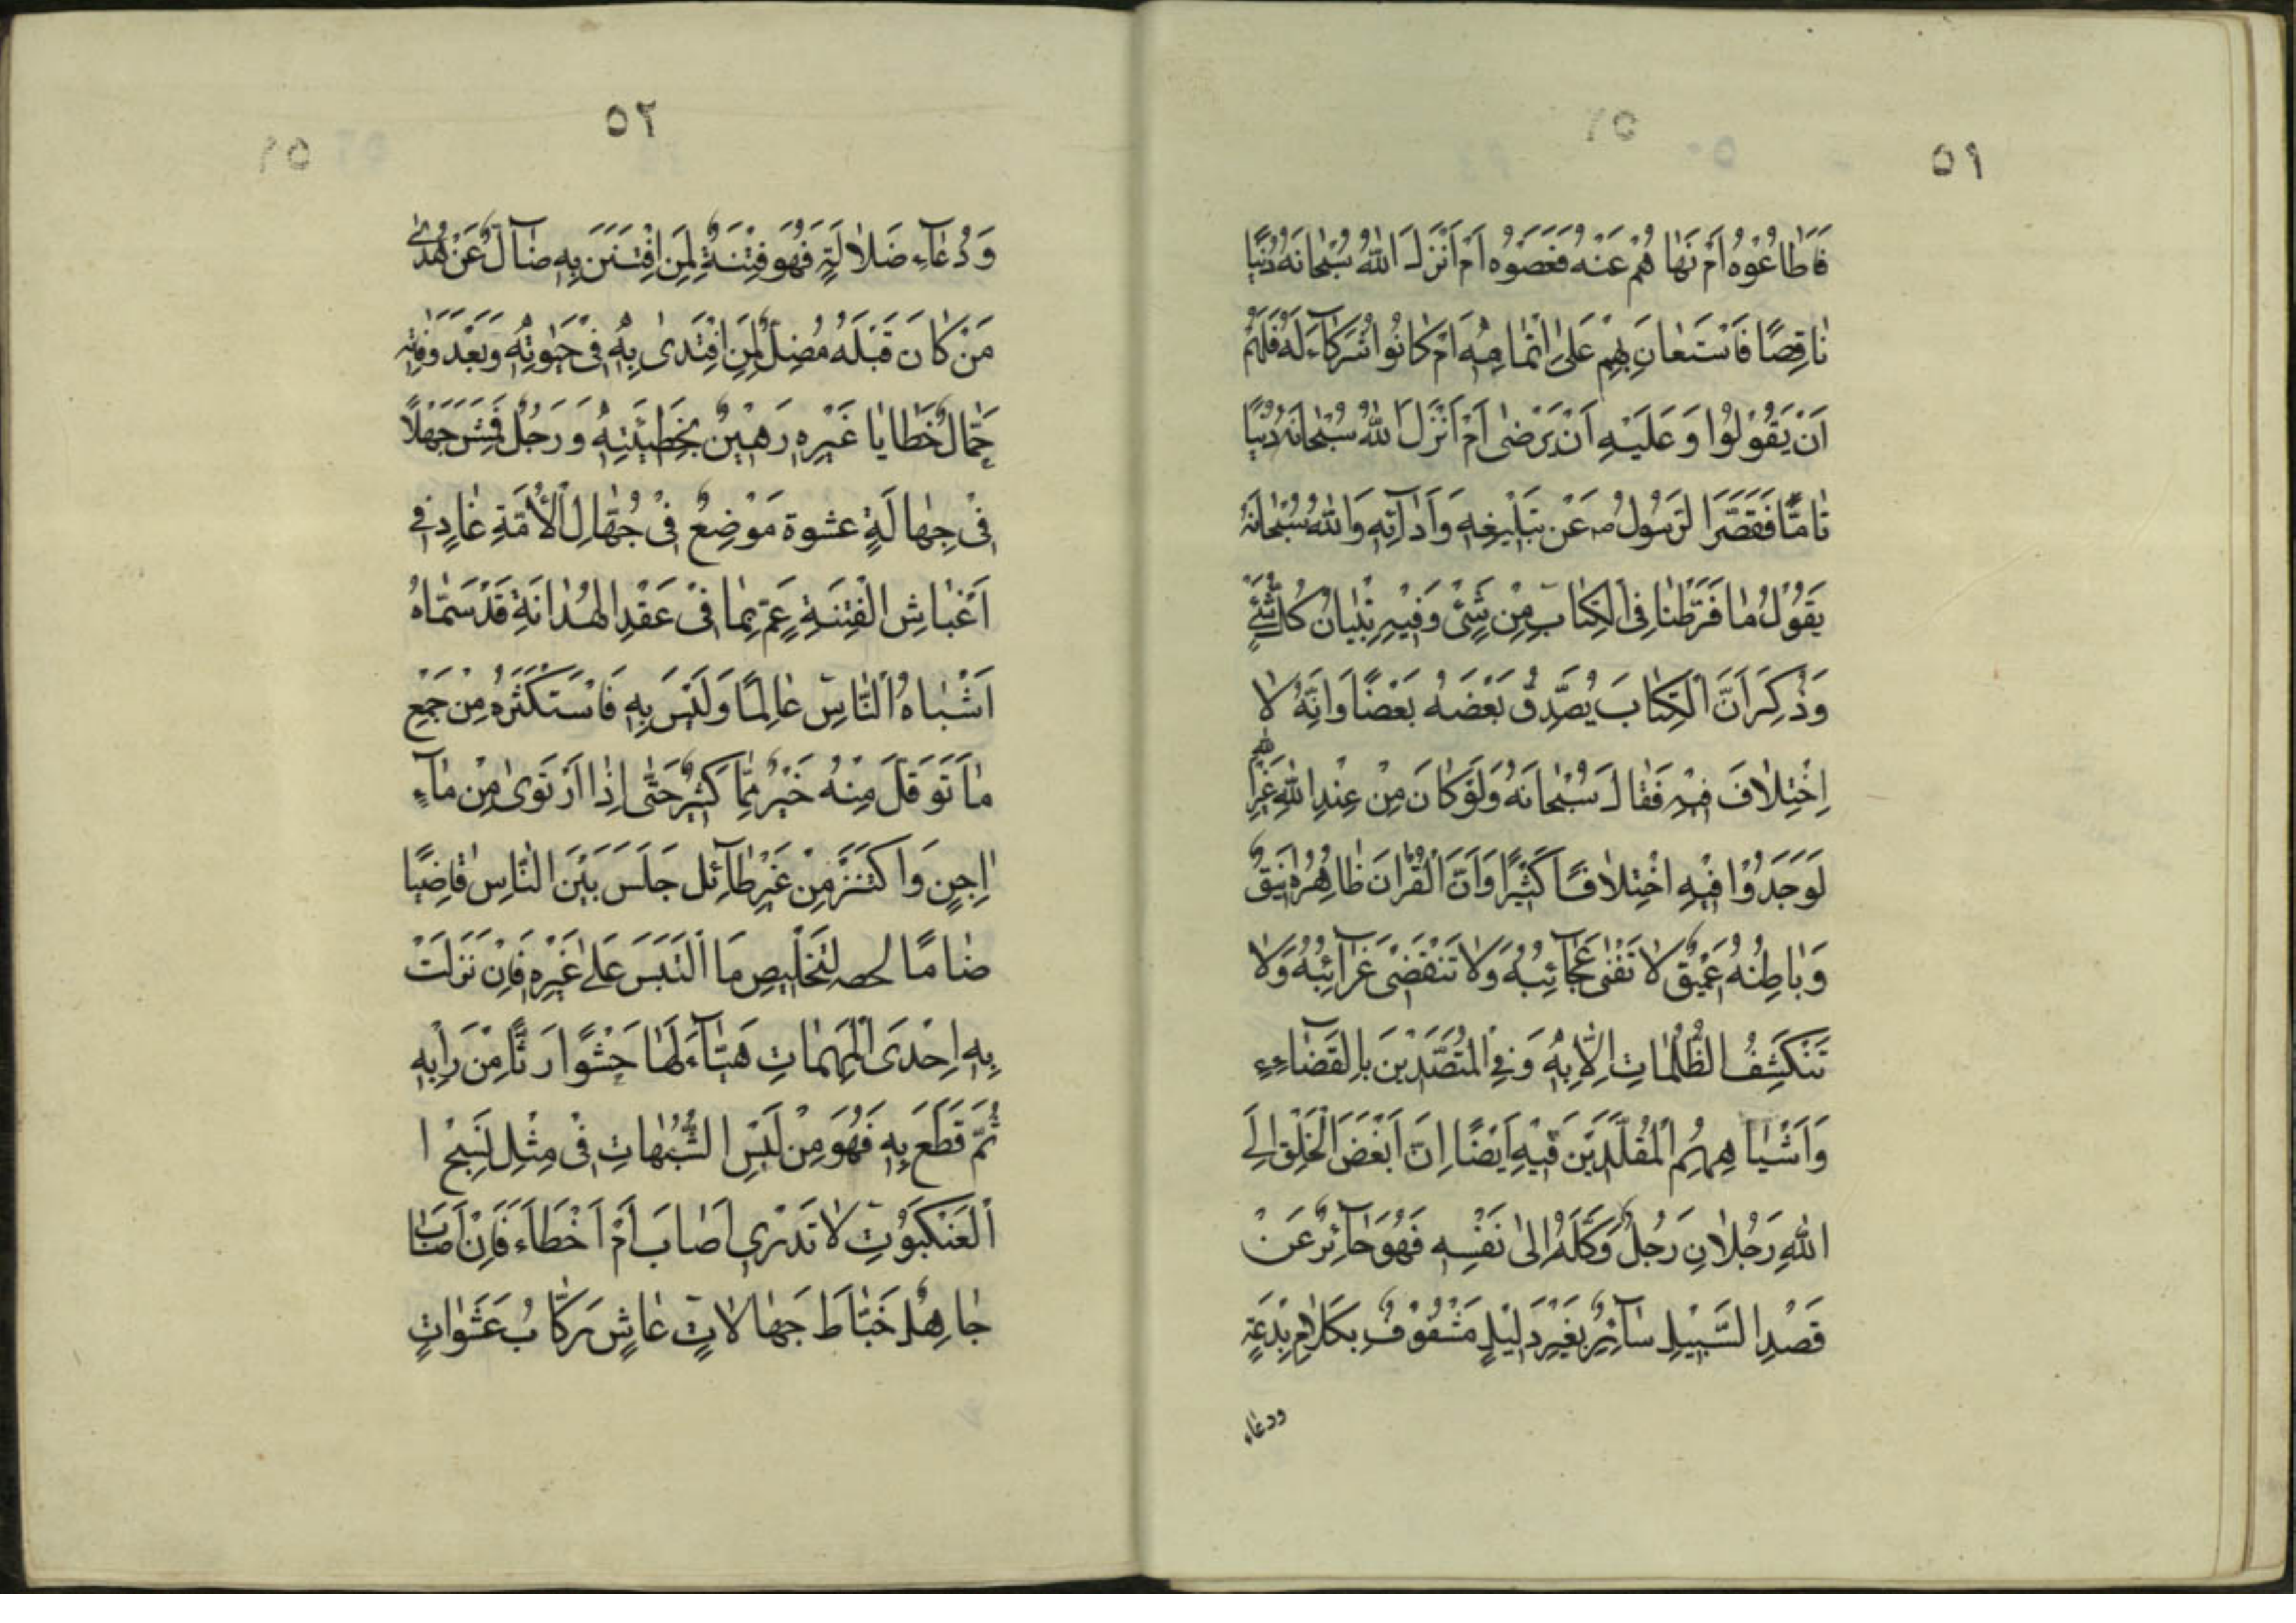 ٥١
فَاَطَاعُوْهُ اَمْ نَهَاهُمْ عَنْهُ فَعَصَوْهُ اَمْ اَنْزَلَ اللّٰهُ سُبْحَانَهُ دِيْنًا
نَاقِصًا فَاسْتَعَانَ بِهِمْ عَلٰى اِتْمَامِهِ اَمْ كَانُوْا شُرَكَآءَ لَهُ فَلَهُمْ
اَنْ يَقُوْلُوْا وَعَلَيْهِ اَنْ يَرْضٰى اَمْ اَنْزَلَ اللّٰهُ سُبْحَانَهُ دِيْنًا
تَامًّا فَقَصَّرَ الرَّسُوْلُ صہ عَنْ تَبْلِيْغِهِ وَاَدَآئِهِ وَاللّٰهُ سُبْحَانَهُ
يَقُوْلُ مَا فَرَّطْنَا فِى الْكِتَابِ مِنْ شَىْءٍ وَفِيْهِ تِبْيَانُ كُلِّ شَىْءٍ
وَذَكَرَ اَنَّ الْكِتَابَ يُصَدِّقُ بَعْضُهُ بَعْضًا وَاِنَّهُ لَا
اِخْتِلَافَ فِيْهِ فَقَالَ سُبْحَانَهُ وَلَوْ كَانَ مِنْ عِنْدِ غَيْرِ اللّٰهِ
لَوَجَدُوْا فِيْهِ اخْتِلَافًا كَثِيْرًا وَاَنَّ الْقُرْاٰنَ ظَاهِرُهُ اَنِيْقٌ
وَبَاطِنُهُ عَمِيْقٌ لَا تَفْنٰى عَجَآئِبُهُ وَلَا تَنْقَضِىْ غَرَآئِبُهُ وَلَا
تَنْكَشِفُ الظُّلُمَاتِ اِلَّا بِهِ وَفِى الْمُتَصَدِّيْنَ بِالْقَضَاءِ
وَاَشْيَاهِهِمُ الْمُقَلَّدِيْنَ فِيْهِ اَيْضًا اِنَّ اَبْغَضَ الْخَلْقِ اِلَى
اللّٰهِ رَجُلَانِ رَجُلٌ وَكَّلَهُ اِلٰى نَفْسِهِ فَهُوَ حَآئِرٌ عَنْ
قَصْدِ السَّبِيْلِ سَآئِرٌ بِغَيْرِ دَلِيْلٍ مَشْغُوْفٌ بِكَلَامِ بِدْعَةٍ
ودعاء
٥٢
وَدُعَآءِ ضَلَالَةٍ فَهُوَ فِتْنَةٌ لِمَنِ افْتَتَنَ بِهِ ضَآلٌّ عَنْ هُدٰى
مَنْ كَانَ قَبْلَهُ مُضِلٌّ لِمَنِ اقْتَدٰى بِهِ فِىْ حَيٰوتِهِ وَبَعْدَ وَفَاتِهِ
حَمَّالٌ خَطَايَا غَيْرِهِ رَهِيْنٌ بِخَطِيْئَتِهِ وَرَجُلٌ قَمَشَ جَهْلًا
فِىْ جَهَالَةٍ عشوة مَوْضِعٌ فِىْ جُهَّالِ الْاُمَّةِ غَادٍ فِى
اَغْبَاشِ الْفِتْنَةِ عَمٍ بِمَا فِىْ عَقْدِ الْهُدَانَةِ قَدْ سَمَّاهُ
اَشْبَاهُ النَّاسِ عَالِمًا وَلَيْسَ بِهِ فَاسْتَكْثَرَهُ مِنْ جَمْعِ
مَا تَوَ قَلَّ مِنْهُ خَيْرٌ مِمَّا كَثُرَ حَتّٰى اِذَا ارْتَوٰى مِنْ مَآءٍ
اٰجِنٍ وَاكْتَنَزَ مِنْ غَيْرِ طَآئِل جَلَسَ بَيْنَ النَّاسِ قَاضِيًا
ضَامًا لحصہ لِتَخْلِيْصِ مَا الْتَبَسَ عَلٰى غَيْرِهِ فَاِنْ نَزَلَتْ
بِهِ اِحْدَى الْمُبْهَمَاتِ هَيَّآءَ لَهَا حَشْوًا رَثًّا مِنْ رَاْيِهِ
ثُمَّ قَطَعَ بِهِ فَهُوَ مِنْ لَبْسِ الشُّبُهَاتِ فِىْ مِثْلِ نَسِيْجِ ا
الْعَنْكَبُوْتِ لَا تَدْرِىْ اَصَابَ اَمْ اَخْطَاَءَ فَاِنْ اَصَابَ
جَاهِلٌ خَبَّاطُ جَهَالَاتٍ عَاشٍ رَكَّابُ عَشَوَاتٍ